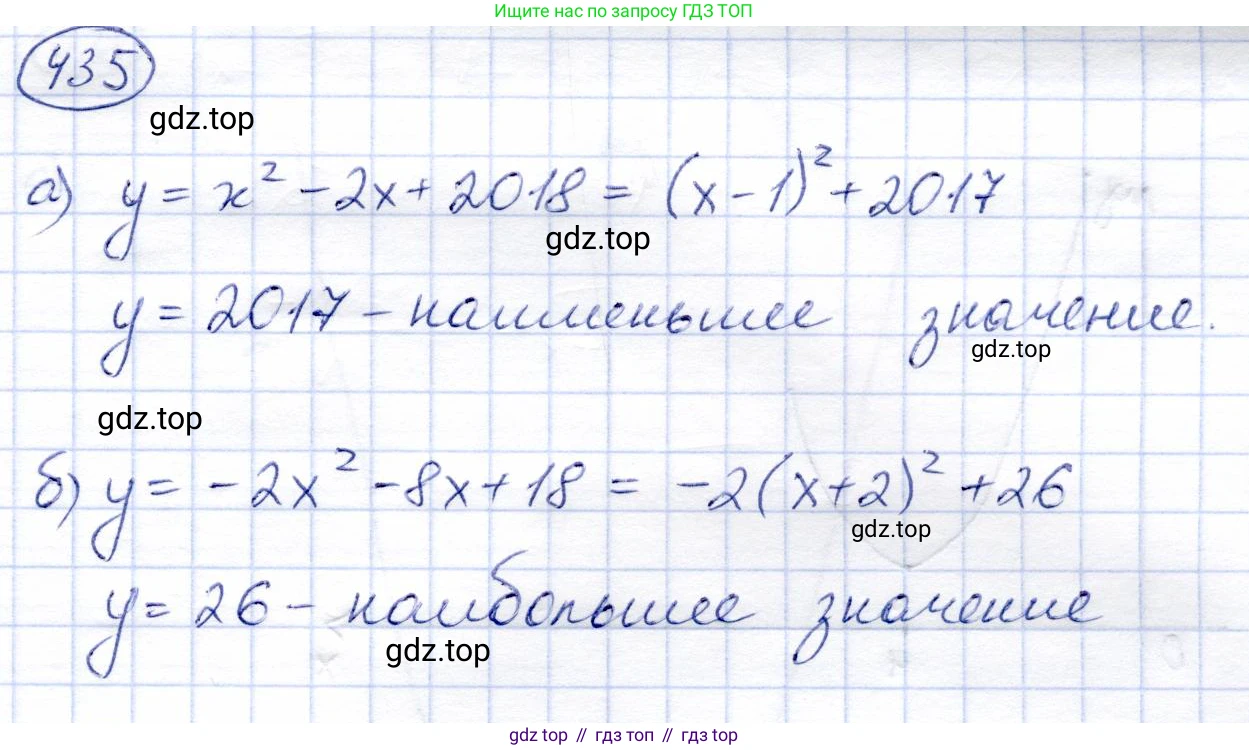 Ищите нас по запросу ГДЗ ТОП
435
gdz.top
а) y = x² - 2x + 2018 = (x - 1)² + 2017
gdz.top
y = 2017 - наименьшее значение.
gdz.top
gdz.top
б) y = - 2x² - 8x + 18 = -2(x+2)² + 26
gdz.top
y = 26 - наибольшее значение
gdz.top
gdz.top // гдз топ // гдз top